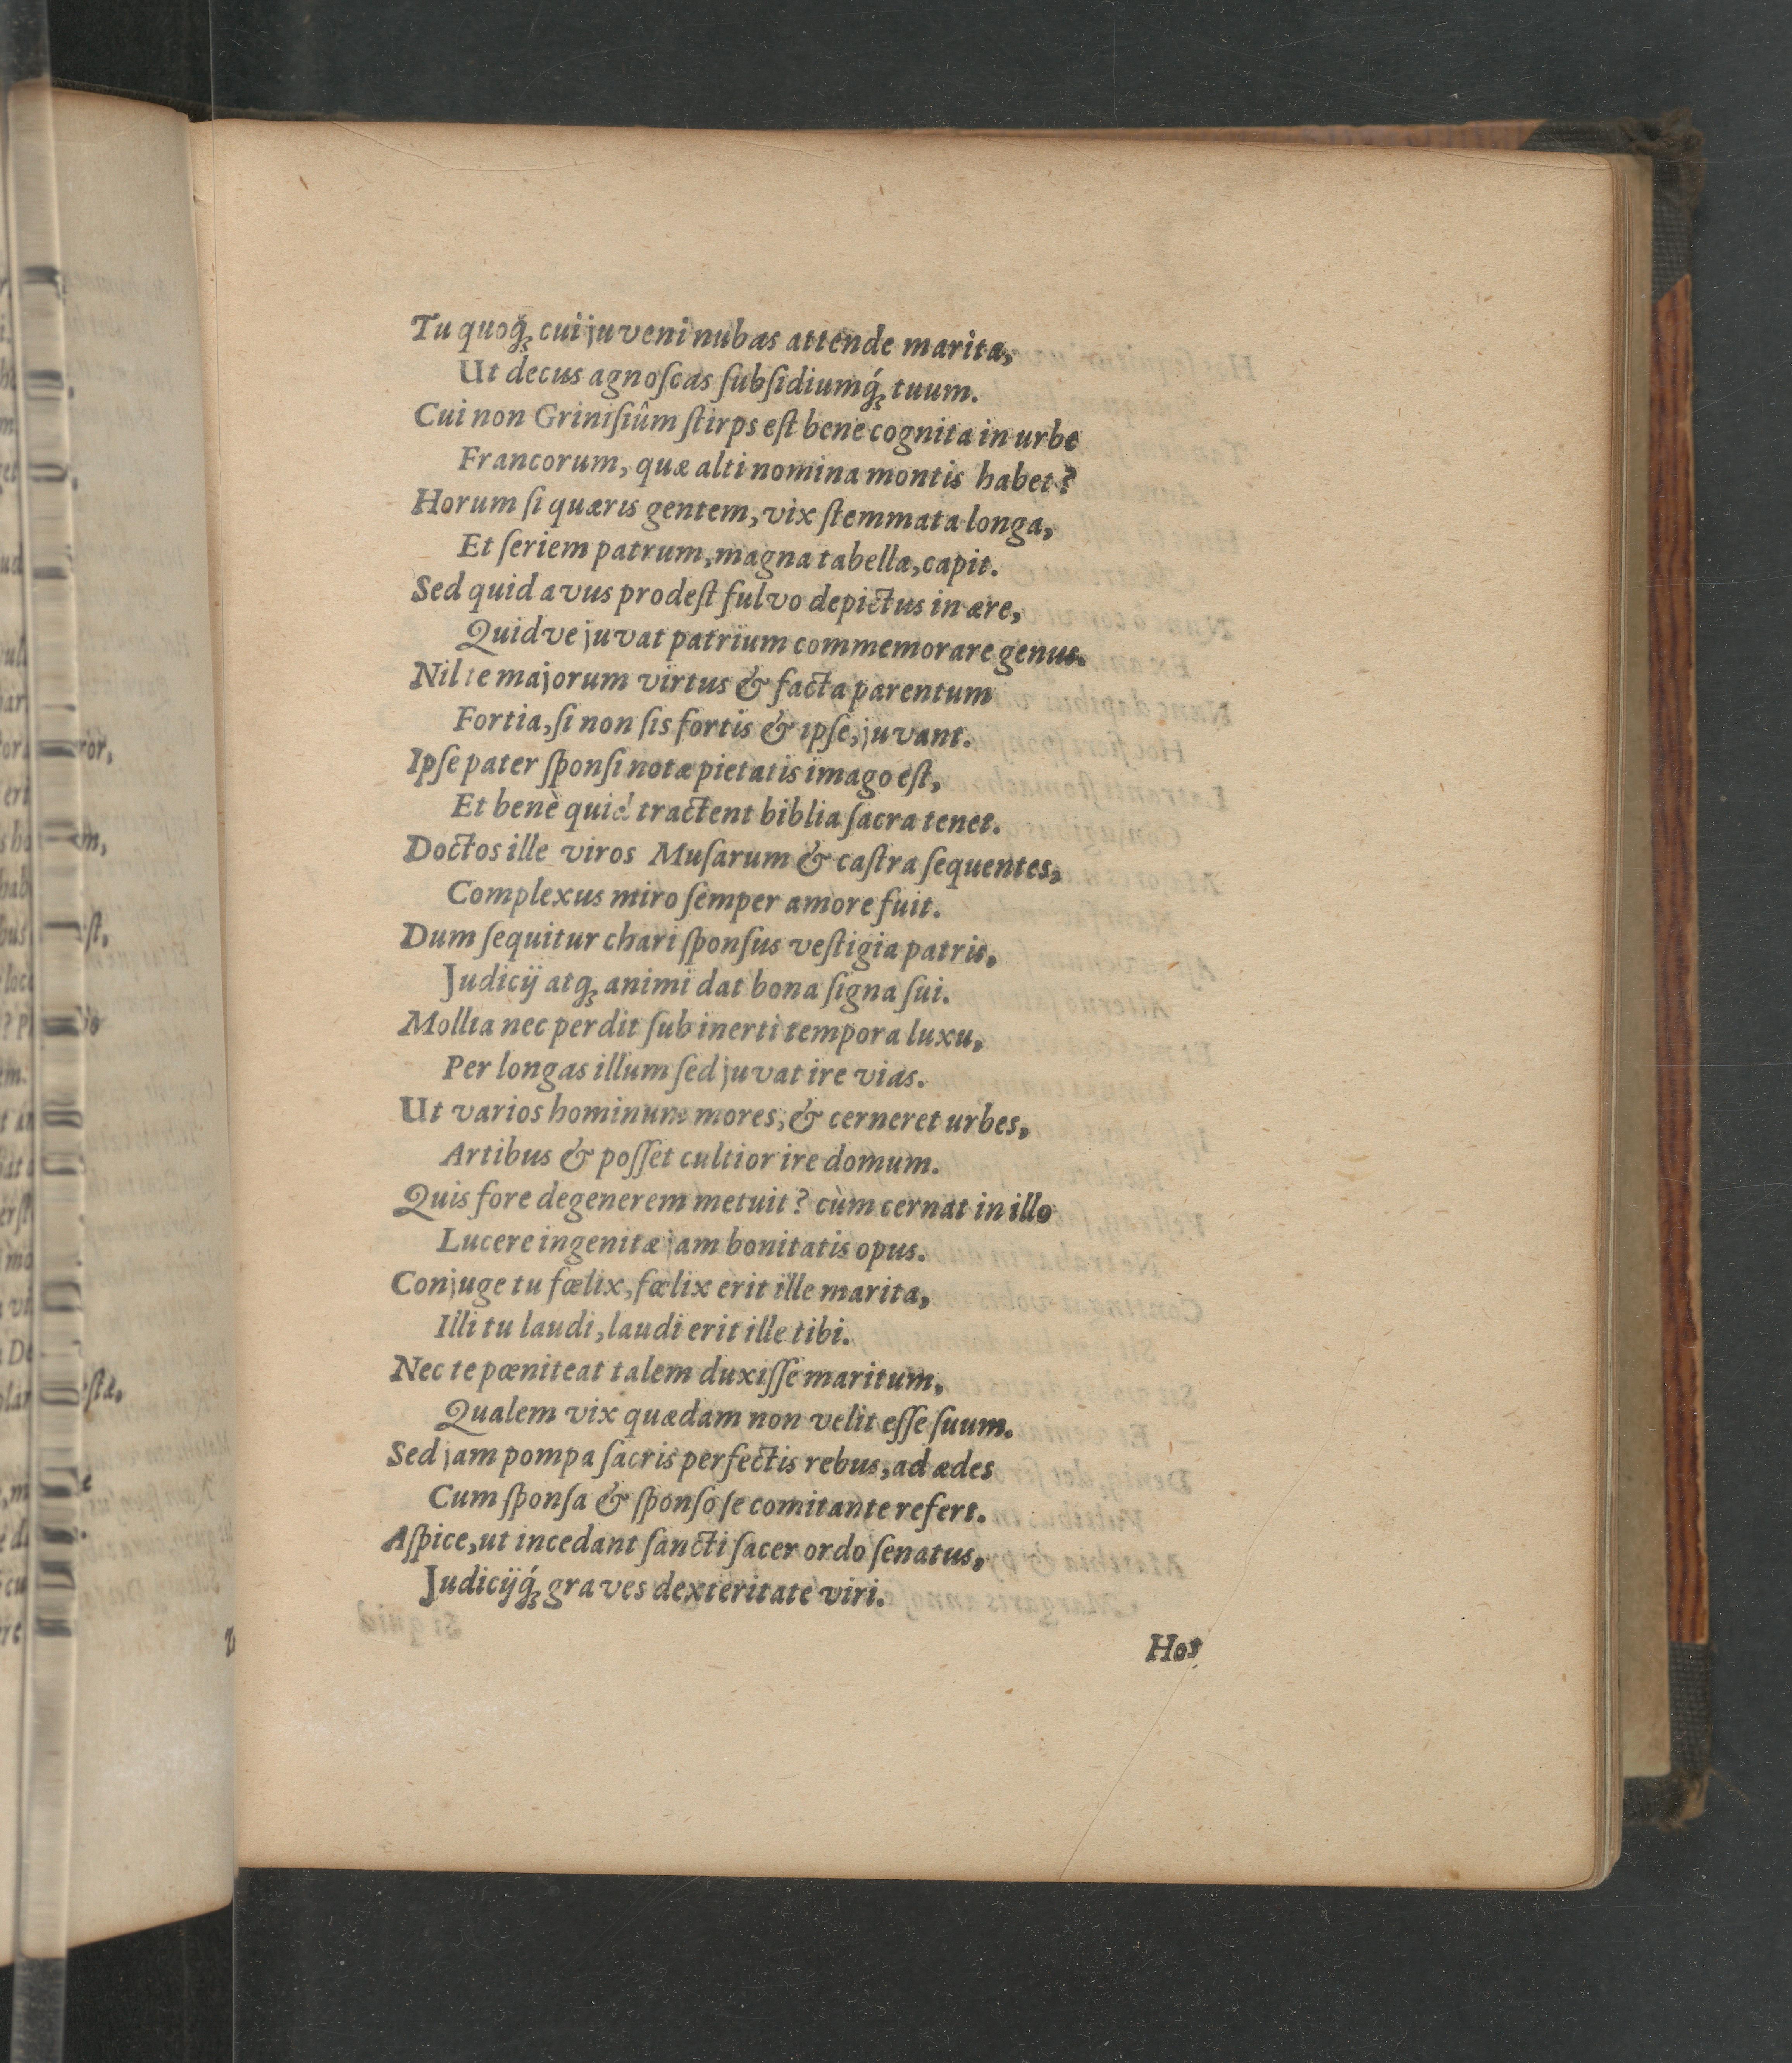 Tu quoq́ꝫ cui juveni nubas attende marita,
Ut decus agnoſcas ſubſidiumq́ꝫ tuum.
Cui non Griniſiûm ſtirps eſt bene cognita in urbe
Francorum, quæ alti nomina montis habet?
Horum ſi quæris gentem, vix ſtemmata longa,
Et ſeriem patrum, magna tabella, capit.
Sed quid avus prodeſt fulvo depictus in ære,
Quidve juvat patrium commemorare genus.
Nil te majorum virtus & facta parentum
Fortia, ſi non ſis fortis & ipſe, juvant.
Ipſe pater ſponſi notæ pietatis imago eſt,
Et benè quid tractent biblia ſacra tenet.
Doctos ille viros Muſarum & caſtra ſequentes,
Complexus miro ſemper amore fuit.
Dum ſequitur chari ſponſus veſtigia patris,
Judicij atqꝫ animi dat bona ſigna ſui.
Mollia nec perdit ſub inerti tempora luxu,
Per longas illum ſed juvat ire vias.
Ut varios hominum mores, & cerneret urbes,
Artibus & poſſet cultior ire domum.
Quis fore degenerem metuit? cùm cernat in illo
Lucere ingenitæ jam bonitatis opus.
Conjuge tu fœlix, fœlix erit ille marita,
Illi tu laudi, laudi erit ille tibi.
Nec te pœniteat talem duxiſſe maritum,
Qualem vix quædam non velit eſſe ſuum.
Sed jam pompa ſacris perfectis rebus, ad ædes
Cum ſponſa & ſponſo ſe comitante refert.
Aſpice, ut incedant ſancti ſacer ordo ſenatus,
Judicijq́ꝫ graves dexteritate viri.
Hos